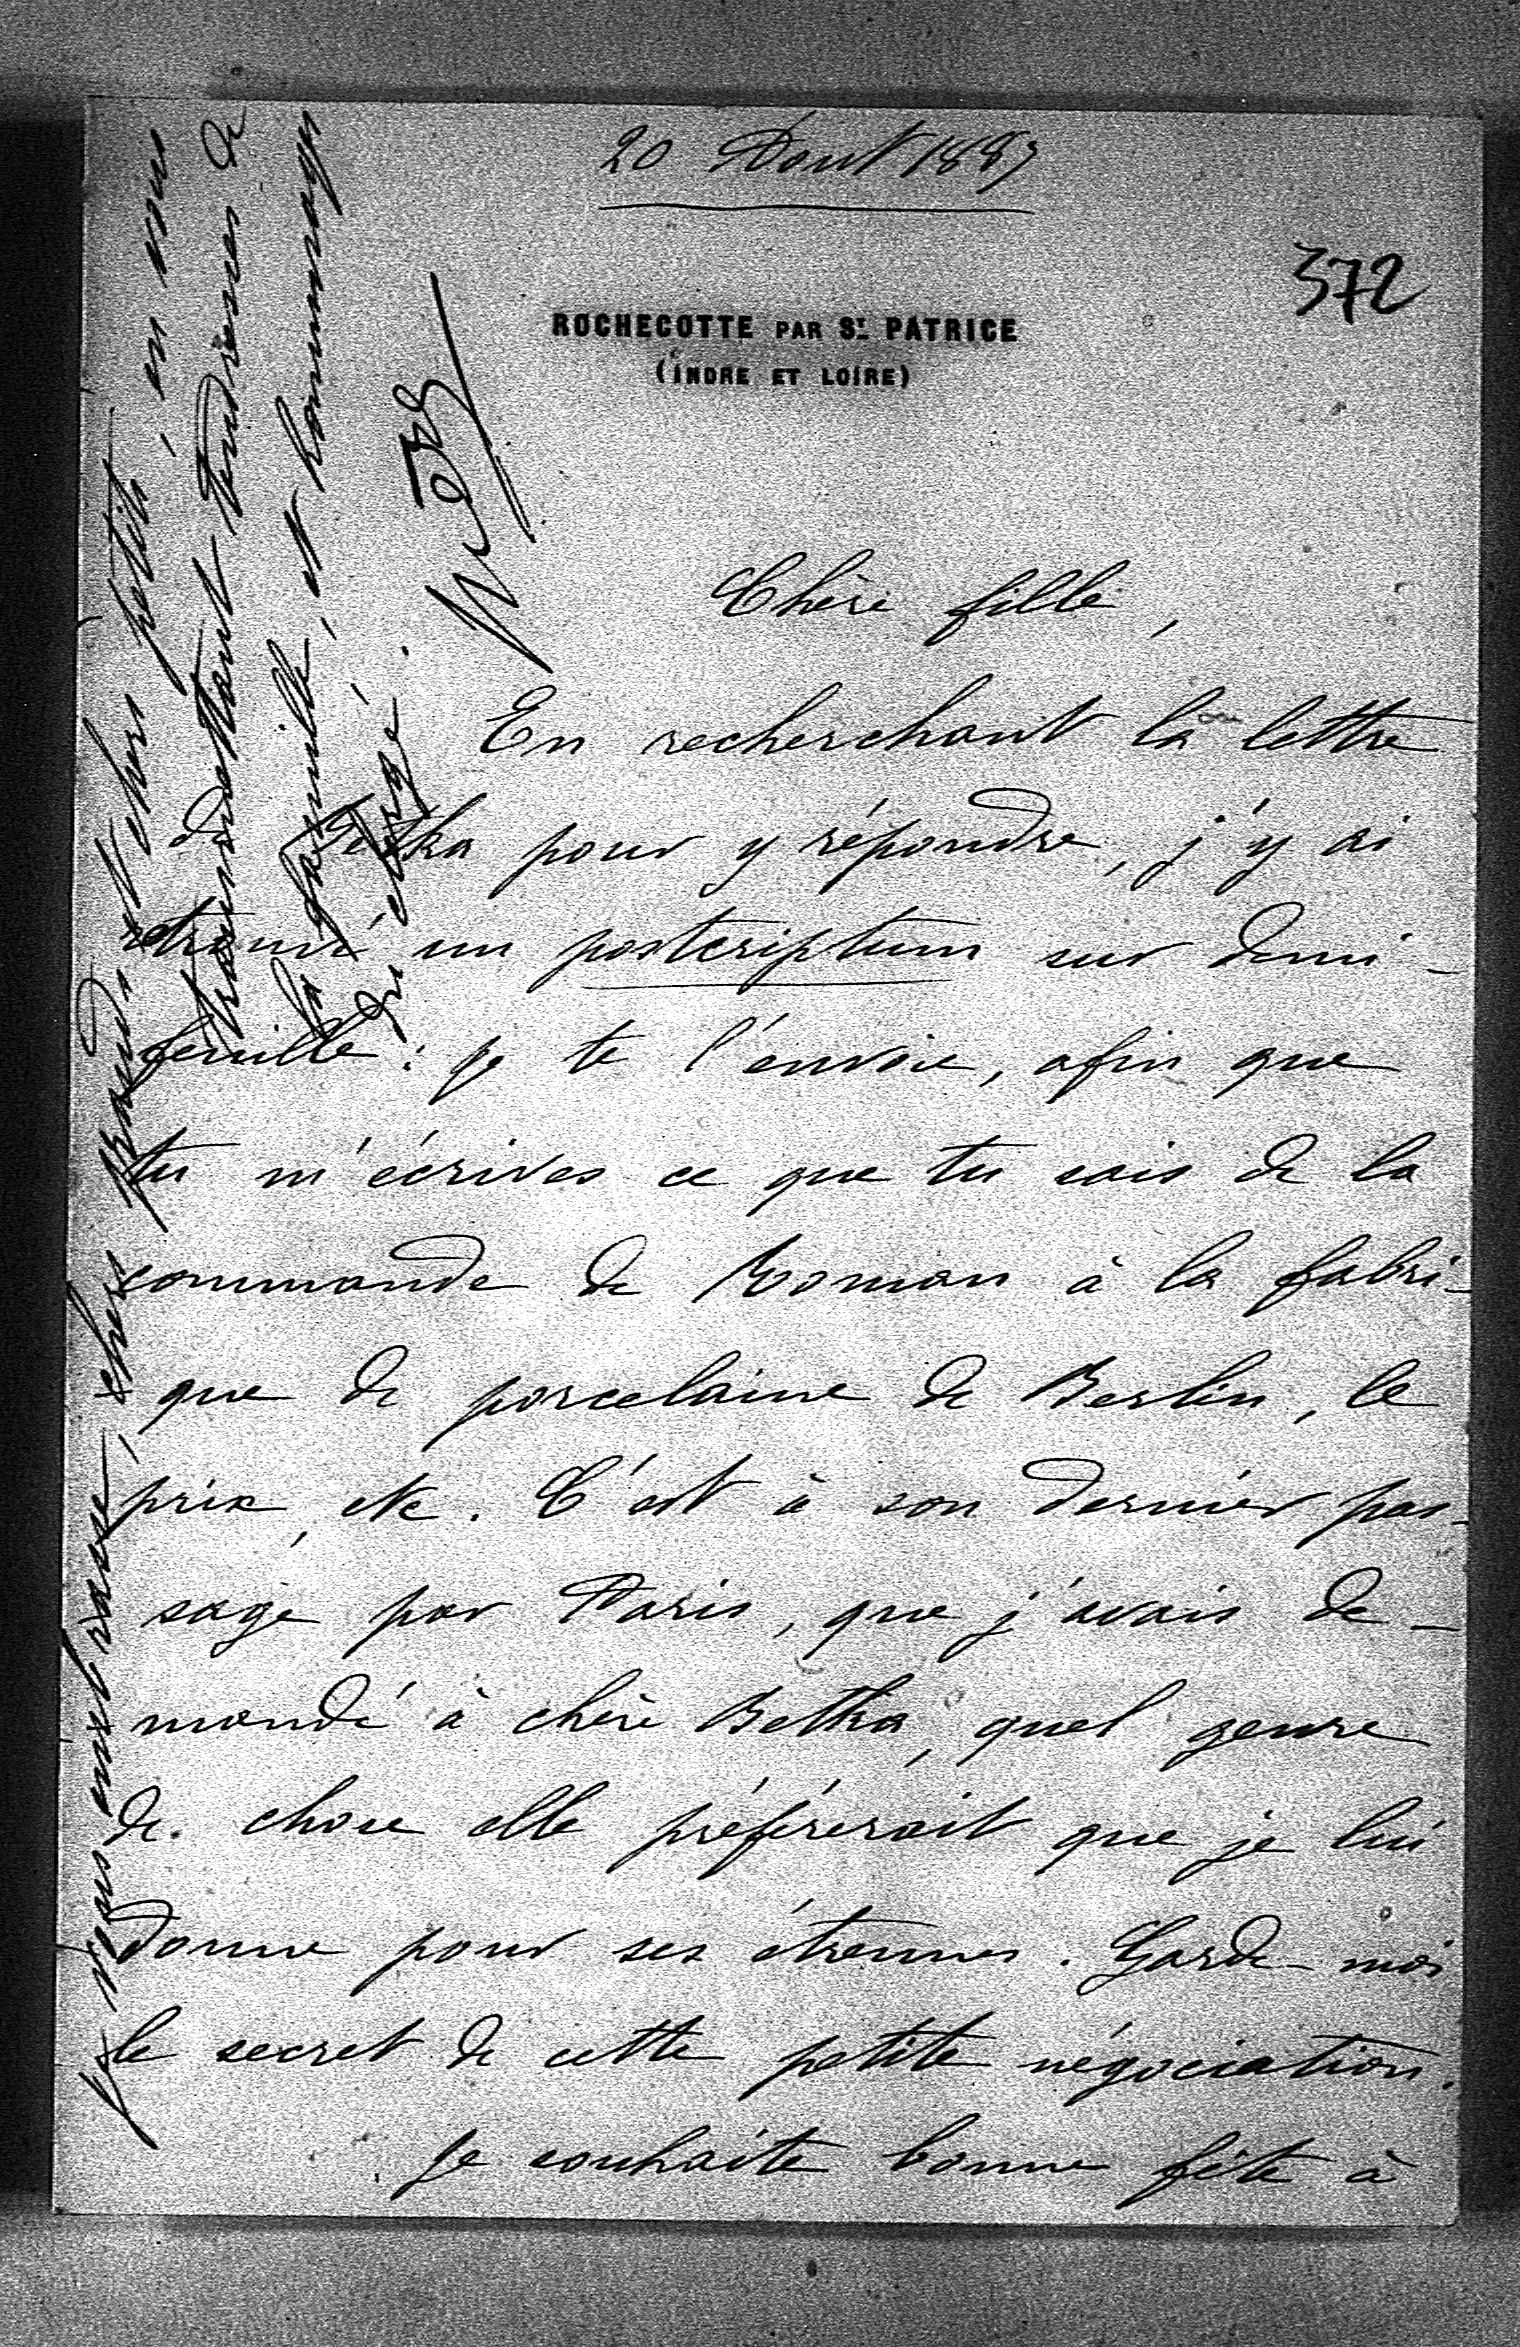 20 Aout 1889
372
ROCHECOTTE PAR ST. PATRICE
(INDRE ET LOIRE)
Chère fille,
En recherchant la lettre
de Betka pour y répondre, j'y ai
retrouvé un postcriptum sur demi-
feuille : je te l'envoie, afin que
tu m'écrives ce que tu sais de la
commande de Roman à la fabri-
que de porcelaine de Berlin, le
prix, etc. C'est à son dernier pas-
sage par Paris, que j'avais de-
mandé à chère Betka, quel genre
de chose elle préférerait que je lui
donne pour ses étrennes. Garde-moi
le secret de cette petite négociation.
Je souhaite bonne fête à
Je vous embrasse, chers grands et chers petits, en vous
transmettant tendresses de
la famille, et hommages
du clergé.